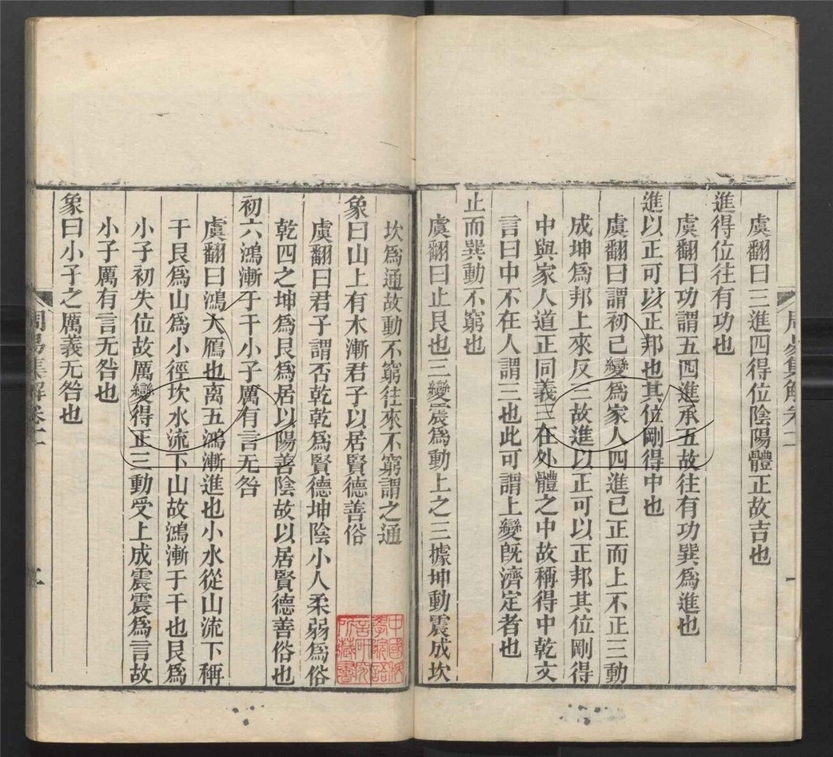 虞翻曰三進四得位陰陽體正故吉也
進得位往有功也
虞翻曰功謂五四進承五故往有功巽爲進也
進以正可以正邦也其位剛得中也
虞翻曰謂初已變爲家人四進已正而上不正三動
成坤爲邦上來反三故進以正可以正邦其位剛得
中與家人道正同義三在外體之中故稱得中乾文
言曰中不在人謂三也此可謂上變旣濟定者也
止而巽動不窮也
虞翻曰止艮也三變震爲動上之三據坤動震成坎
坎爲通故動不窮往來不窮謂之通
象曰山上有木漸君子以居賢德善俗
虞翻曰君子謂否乾乾爲賢德坤陰小人柔弱爲俗
乾四之坤爲艮爲居以陽善陰故以居賢德善俗也
初六鴻漸于干小子厲有言无咎
虞翻曰鴻大鴈也离五鴻漸進也小水從山流下稱
干艮爲山爲小徑坎水流下山故鴻漸于干也艮爲
小子初失位故厲變得正三動受上成震震爲言故
小子厲有言无咎也
象曰小子之厲義无咎也
周易集解卷十一
二